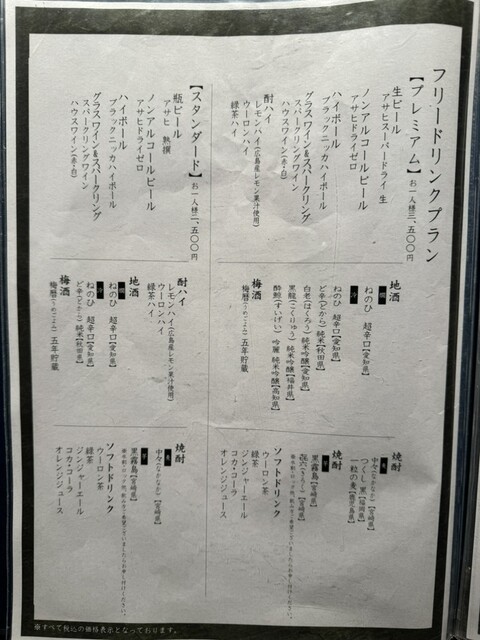 フリードリンクプラン
【プレミアム】お一人様三、五〇〇円
生ビール
アサヒスーパードライ 生
ノンアルコールビール
アサヒドライゼロ
ハイボール
ブラックニッカハイボール
グラスワイン&スパークリング
スパークリングワイン
ハウスワイン(赤・白)
酎ハイ
レモンハイ(広島産レモン果汁使用)
ウーロンハイ
緑茶ハイ
地酒
ねのひ 超辛口【愛知県】
冷
ねのひ 超辛口【愛知県】
ど辛(どから) 純米【秋田県】
白老(はくろう) 純米吟醸【愛知県】
黒龍(こくりゅう) 純米吟醸【福井県】
酔鯨(すいげい) 吟麗 純米吟醸【高知県】
梅酒
梅暦(うめごよみ) 五年貯蔵
焼酎
麦
中々(なかなか)【宮崎県】
つくし 黒【福岡県】
一粒の麦【鹿児島県】
芋
黒霧島【宮崎県】
㐂六(きろく)【宮崎県】
ソフトドリンク
ウーロン茶
緑茶
ジンジャーエール
コカ・コーラ
オレンジジュース
【スタンダード】お一人様二、五〇〇円
瓶ビール
アサヒ 熟撰
ノンアルコールビール
アサヒドライゼロ
ハイボール
ブラックニッカハイボール
グラスワイン&スパークリング
スパークリングワイン
ハウスワイン(赤・白)
酎ハイ
レモンハイ(広島産レモン果汁使用)
ウーロンハイ
緑茶ハイ
地酒
ねのひ 超辛口【愛知県】
冷
ねのひ 超辛口【愛知県】
ど辛(どから) 純米【秋田県】
梅酒
梅暦(うめごよみ) 五年貯蔵
焼酎
麦
中々(なかなか)【宮崎県】
芋
黒霧島【宮崎県】
ソフトドリンク
ウーロン茶
緑茶
ジンジャーエール
コカ・コーラ
オレンジジュース
※すべて税込の価格表示となっております。